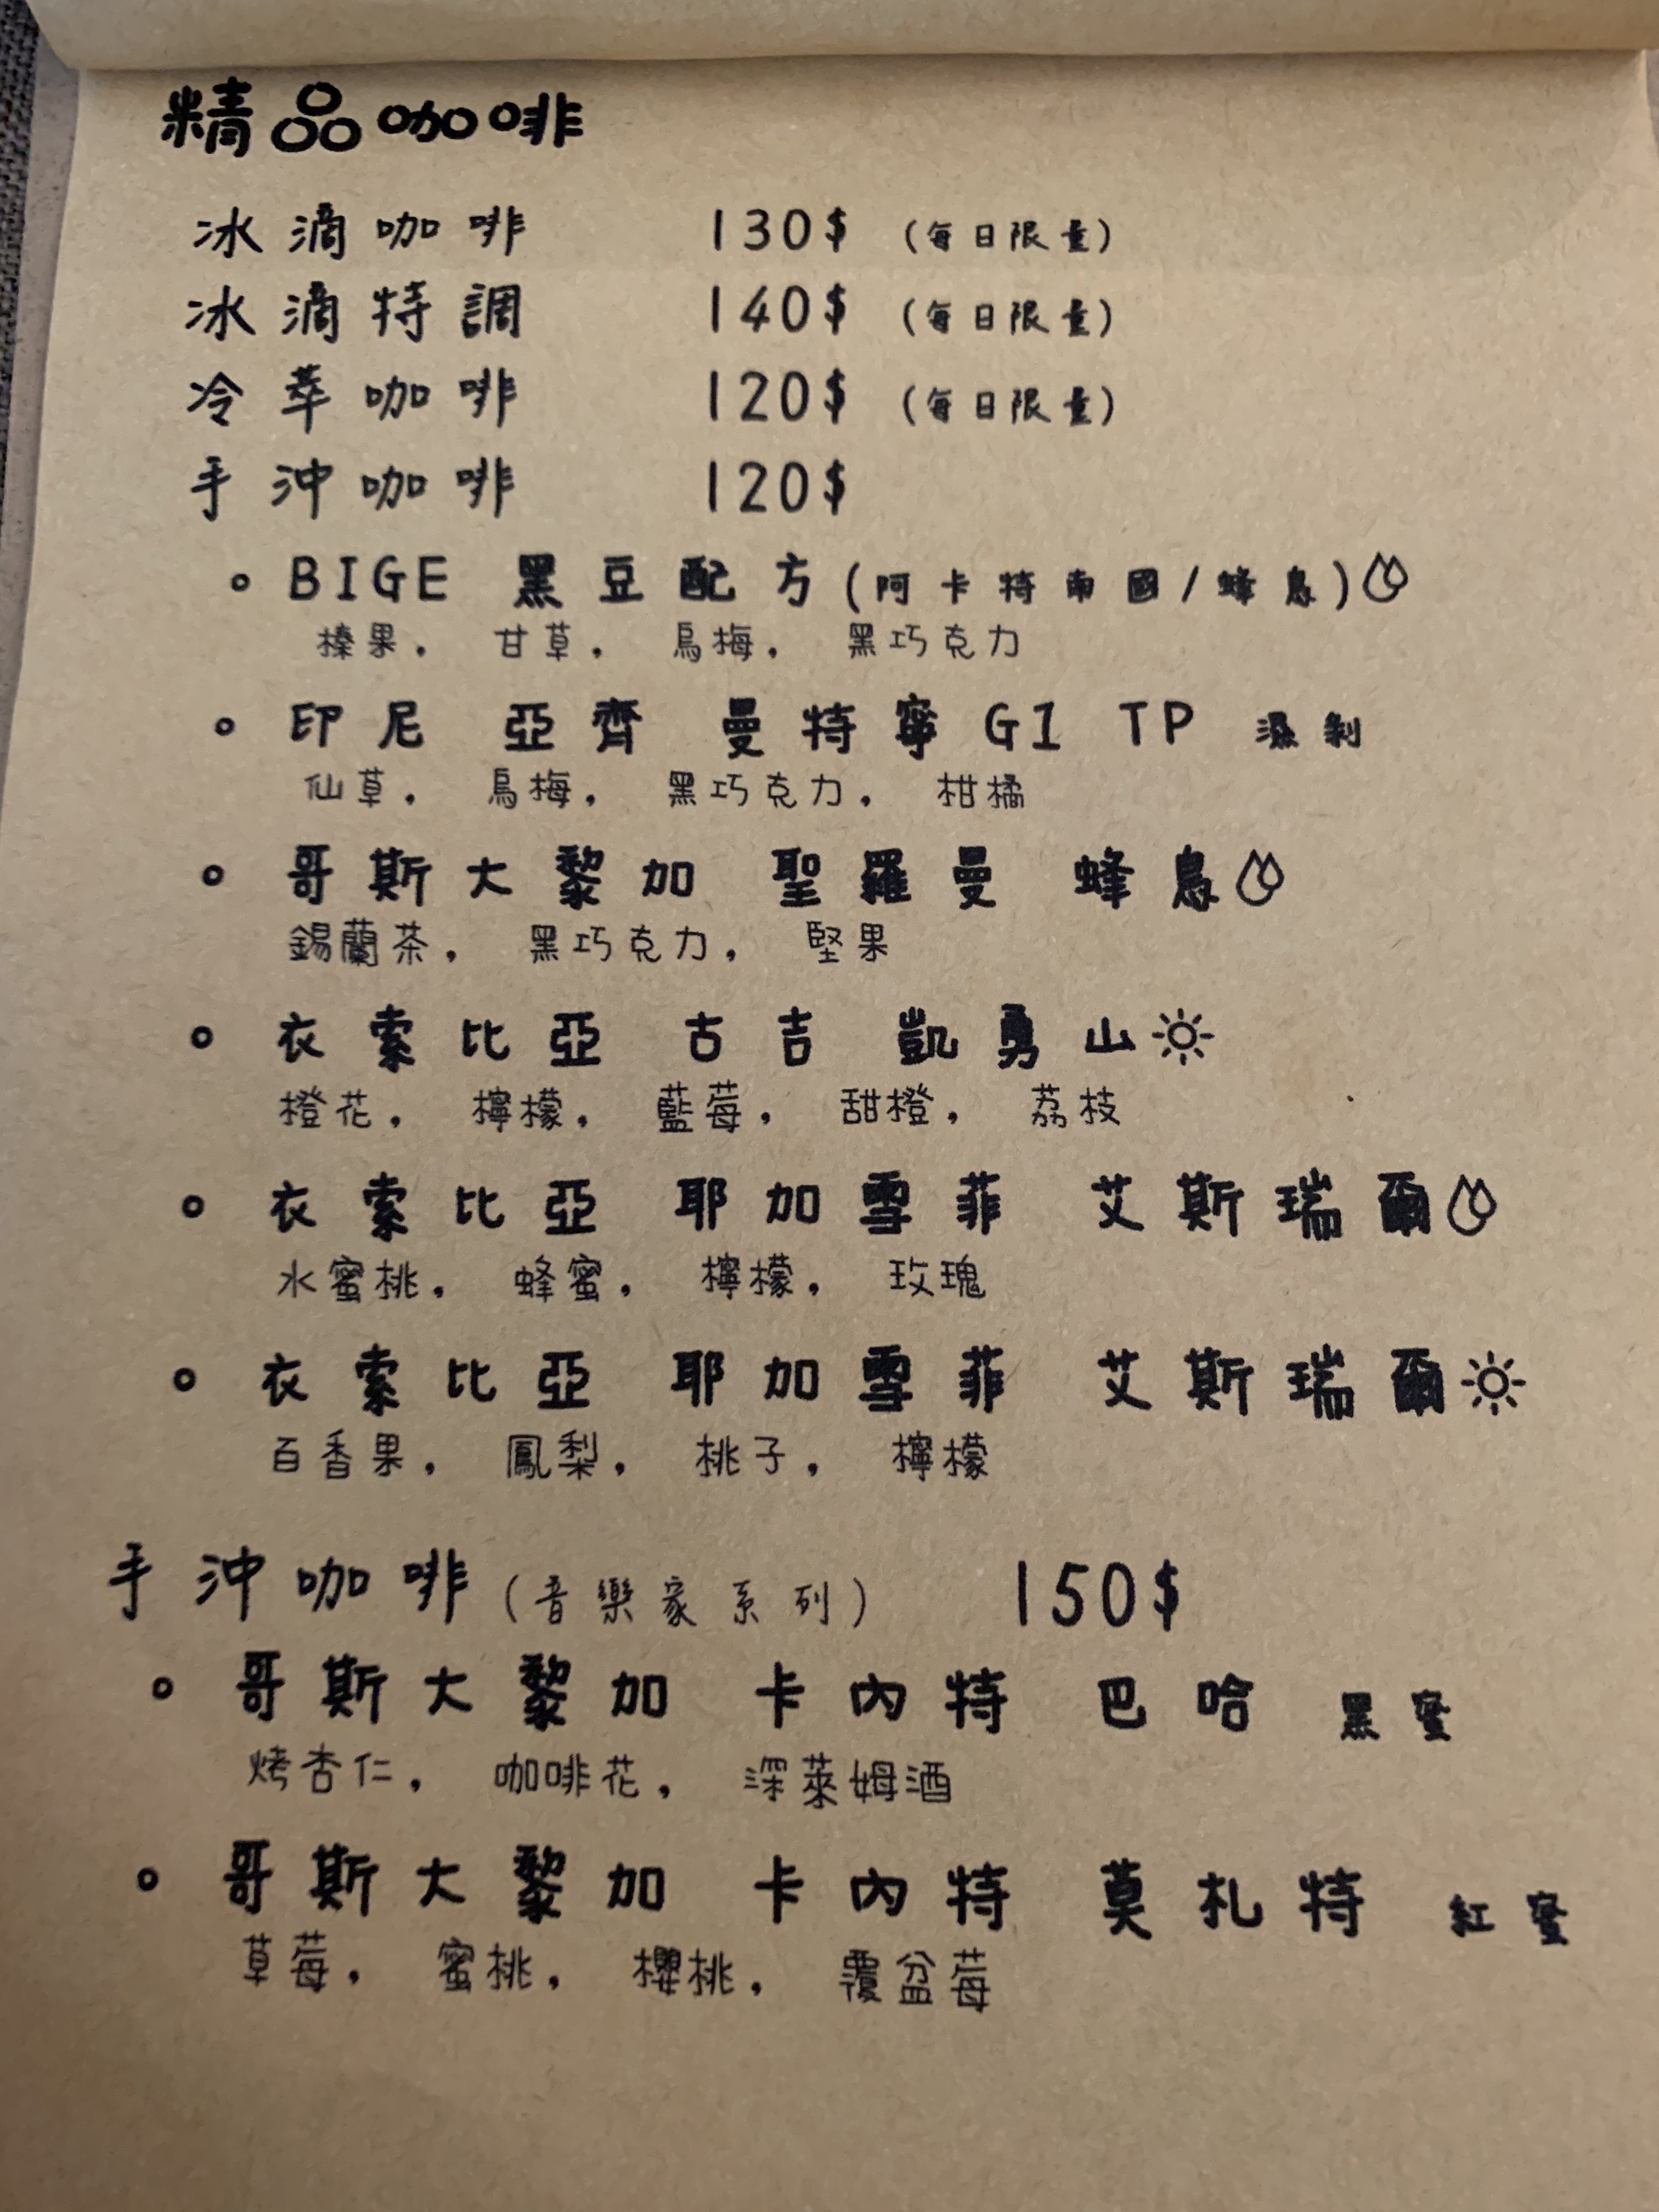 精品咖啡
冰滴咖啡 130$ (每日限量)
冰滴特調 140$ (每日限量)
冷萃咖啡 120$ (每日限量)
手沖咖啡 120$
。BIGE 黑豆配方(阿卡特南國/蜂鳥)
榛果, 甘草, 烏梅, 黑巧克力
。印尼 亞齊 曼特寧 G1 TP 濕剝
仙草, 烏梅, 黑巧克力, 柑橘
。哥斯大黎加 聖羅曼 蜂鳥
錫蘭茶, 黑巧克力, 堅果
。衣索比亞 古吉 凱勇山
橙花, 檸檬, 藍莓, 甜橙, 荔枝
。衣索比亞 耶加雪菲 艾斯瑞爾
水蜜桃, 蜂蜜, 檸檬, 玫瑰
。衣索比亞 耶加雪菲 艾斯瑞爾
百香果, 鳳梨, 桃子, 檸檬
手沖咖啡(音樂家系列) 150$
。哥斯大黎加 卡內特 巴哈 黑蜜
烤杏仁, 咖啡花, 深萊姆酒
。哥斯大黎加 卡內特 莫札特 紅蜜
草莓, 蜜桃, 櫻桃, 覆盆莓